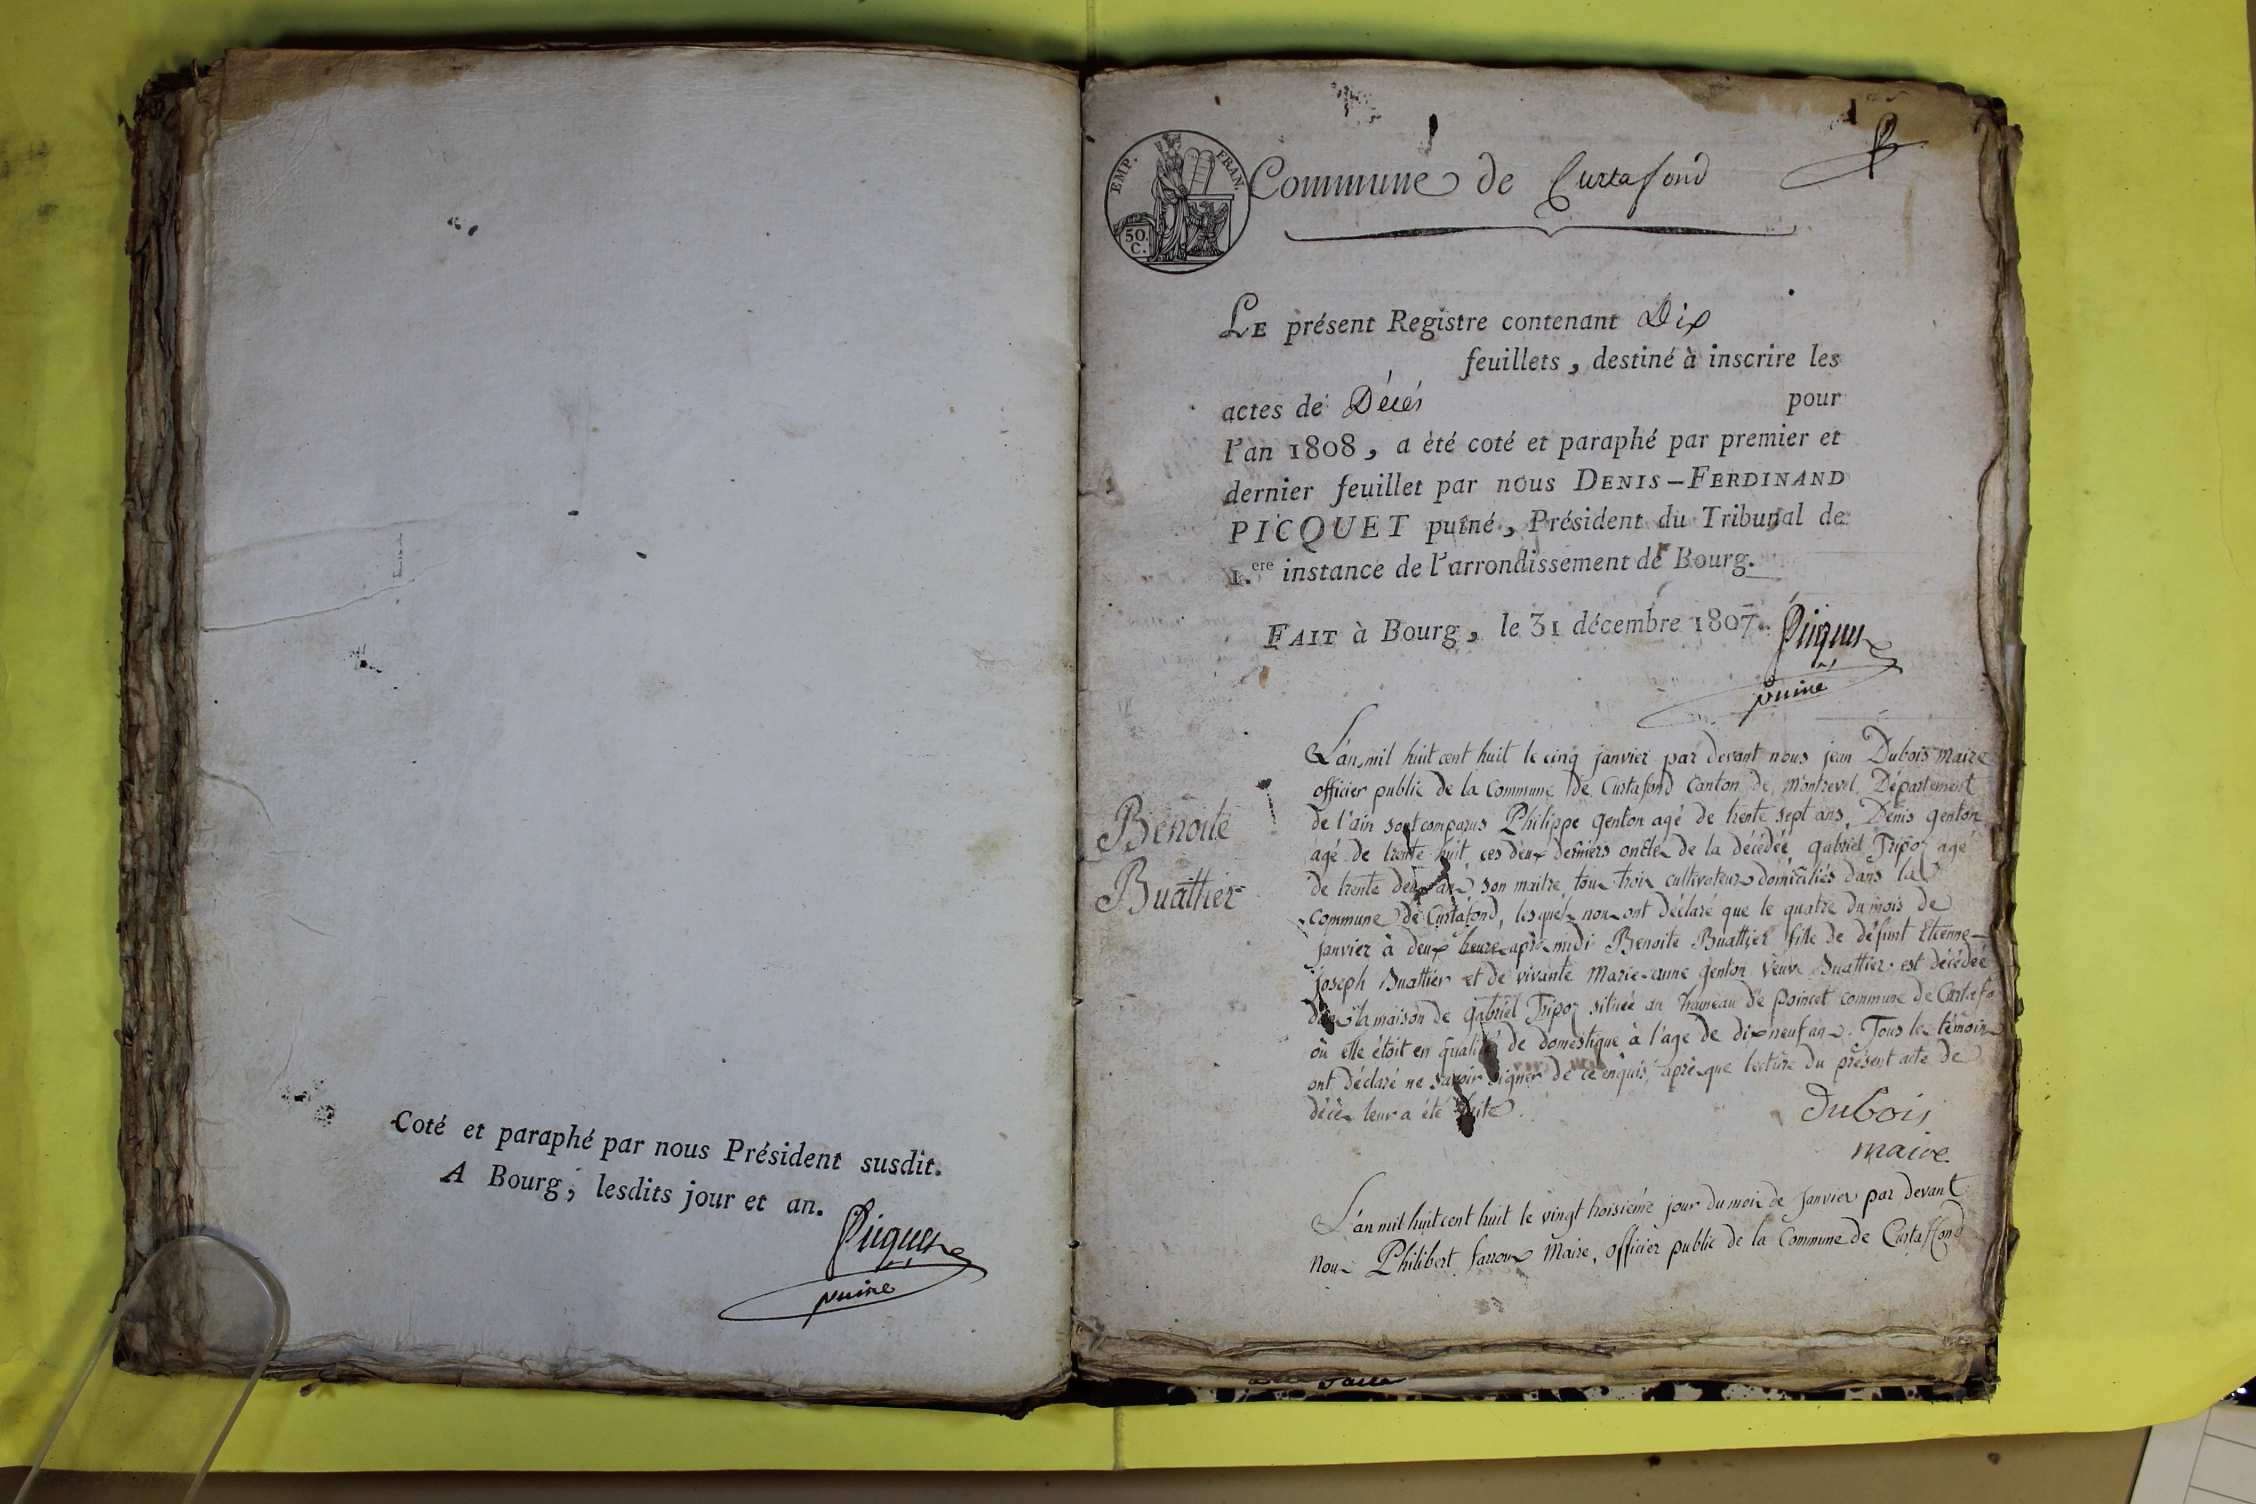 Coté et paraphé par nous Président susdit.
A Bourg, lesdits jour et an.
Picquet
puiné
EMP. FRAN.
50.
C.
Commune de Curtafond
LE présent Registre contenant Dix
feuillets, destiné à inscrire les
actes de Décés pour
l'an 1808, a été coté et paraphé par premier et
dernier feuillet par nous DENIS-FERDINAND
PICQUET puîné, Président du Tribunal de
1.ere instance de l'arrondissement de Bourg.
FAIT à Bourg, le 31 décembre 1807.
Picquet
puiné
Benoite
Buathier
1
L'an mil huit cent huit le cinq janvier par devant nous jean Dubois maire
officier public de la Commune de Curtafond Canton de Montrevel Département
de l'ain sont comparus Philippe genton agé de trente sept ans, Denis genton
agé de trente huit, ces deux derniers oncles de la décédée gabriel Tripoz agé
de trente deux ans son maitre, tous trois cultivateurs domiciliés dans la
Commune de Curtafond, lesquels nous ont déclaré que le quatre du mois de
janvier à deux heures après midi Benoite Buathier fille de défunt Etienne
joseph Buathier et de vivante Marie-anne genton veuve Buathier est décédée
dans la maison de gabriel Tripoz située au hameau de poincet commune de Curtafo
où elle étoit en qualité de domestique à l'age de dix neuf ans. Tous les témoins
ont déclaré ne savoir signer de ce enquis, après que lecture du présent acte de
décès leur a été faite.
Dubois
maire
L'an mil huit cent huit le vingt troisieme jour du mois de Janvier par devant
Nous Philibert farroux Maire, officier public de la Commune de Curtaffond